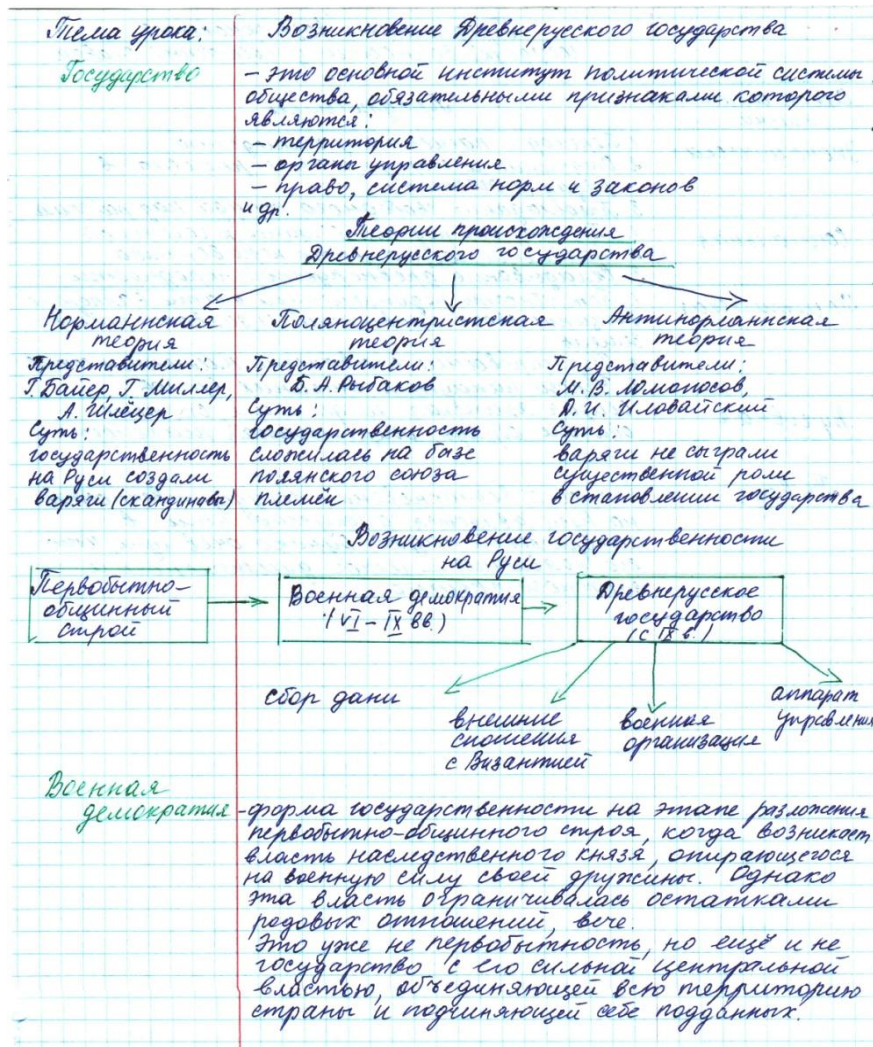 Тема урока: Возникновение Древнерусского государства
Государство – это основной институт политической системы
общества, обязательными признаками которого
являются:
– территория
– органы управления
– право, система норм и законов
и др.
Теории происхождения
Древнерусского государства
Норманнская
теория
Представители:
Г. Байер, Г. Миллер,
А. Шлёцер
Суть:
государственность
на Руси создали
варяги (скандинавы)
Поляноцентристская
теория
Представители:
Б. А. Рыбаков
Суть:
государственность
сложилась на базе
полянского союза
племён
Антинорманнская
теория
Представители:
М. В. Ломоносов,
Д. И. Иловайский
Суть:
варяги не сыграли
существенной роли
в становлении государства
Возникновение государственности
на Руси
Первобытно-
общинный
строй
Военная демократия
(VI – IX вв.)
Древнерусское
государство
(с IX в.)
сбор дани
внешние
сношения
с Византией
военная
организация
аппарат
управления
Военная
демократия – форма государственности на этапе разложения
первобытно-общинного строя, когда возникает
власть наследственного князя, опирающегося
на военную силу своей дружины. Однако
эта власть ограничивалась остатками
родовых отношений, вече.
Это уже не первобытность, но ещё и не
государство с его сильной центральной
властью, объединяющей всю территорию
страны и подчиняющей себе подданных.